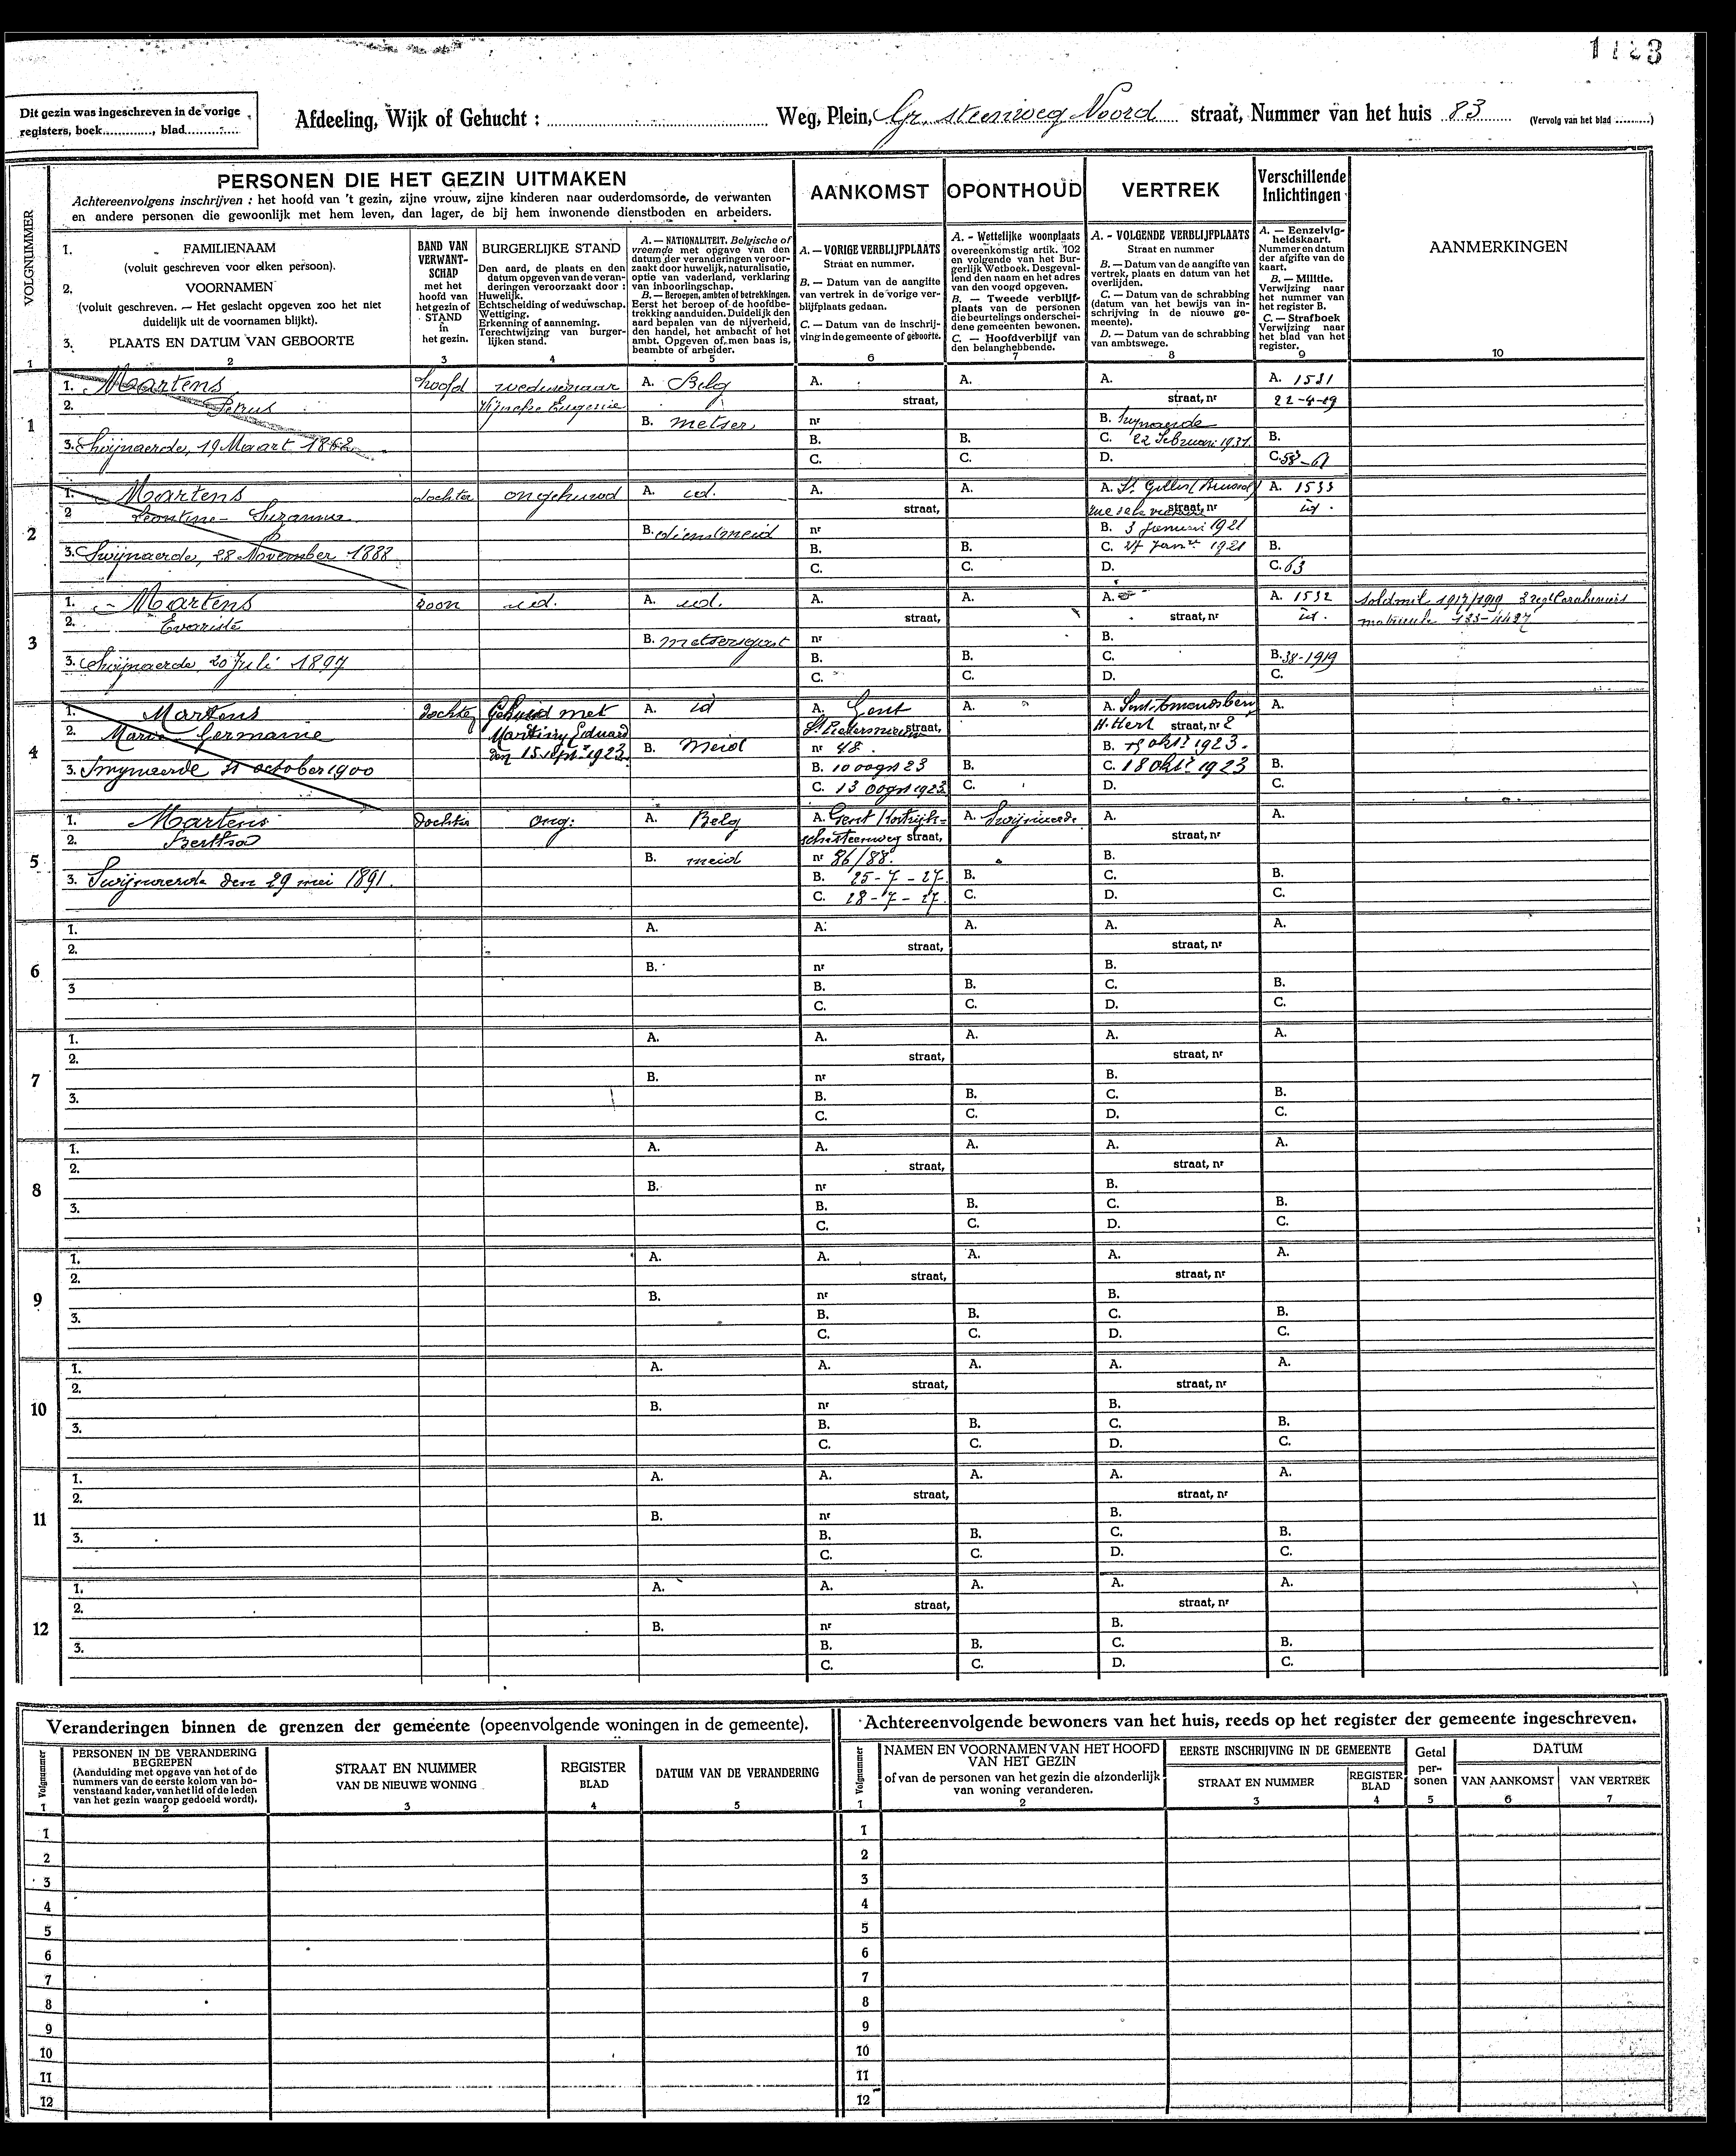 1123
Dit gezin was ingeschreven in de vorige
registers, boek............, blad............
Afdeeling, Wijk of Gehucht : ............ Weg, Plein, Gr. steenweg Noord straat, Nummer van het huis 83 (Vervolg van het blad .........)
VOLGNUMMER
PERSONEN DIE HET GEZIN UITMAKEN
Achtereenvolgens inschrijven : het hoofd van 't gezin, zijne vrouw, zijne kinderen naar ouderdomsorde, de verwanten
en andere personen die gewoonlijk met hem leven, dan lager, de bij hem inwonende dienstboden en arbeiders.
AANKOMST
OPONTHOUD
VERTREK
Verschillende
Inlichtingen
AANMERKINGEN
1. FAMILIENAAM
(voluit geschreven voor elken persoon).
2. VOORNAMEN
(voluit geschreven. — Het geslacht opgeven zoo het niet
duidelijk uit de voornamen blijkt).
3. PLAATS EN DATUM VAN GEBOORTE
BAND VAN
VERWANT-
SCHAP
met het
hoofd van
het gezin of
STAND
in
het gezin.
BURGERLIJKE STAND
Den aard, de plaats en den
datum opgeven van de veran-
deringen veroorzaakt door :
Huwelijk.
Echtscheiding of weduwschap.
Wettiging.
Erkenning of aanneming.
Terechtwijzing van burger-
lijken stand.
A. — NATIONALITEIT. Belgische of
vreemde met opgave van den
datum der veranderingen veroor-
zaakt door huwelijk, naturalisatie,
optie van vaderland, verklaring
van inboorlingschap.
B. — Beroepen, ambten of betrekkingen.
Eerst het beroep of de hoofdbe-
trekking aanduiden. Duidelijk den
aard bepalen van de nijverheid,
den handel, het ambacht of het
ambt. Opgeven of men baas is,
beambte of arbeider.
A. — VORIGE VERBLIJFPLAATS
Straat en nummer.
B. — Datum van de aangifte
van vertrek in de vorige ver-
blijfplaats gedaan.
C. — Datum van de inschrij-
ving in de gemeente of geboorte.
A. - Wettelijke woonplaats
overeenkomstig artik. 102
en volgende van het Bur-
gerlijk Wetboek. Desgeval-
lend den naam en het adres
van den voogd opgeven.
B. — Tweede verblijf-
plaats van de personen
die beurtelings onderschei-
dene gemeenten bewonen.
C. — Hoofdverblijf van
den belanghebbende.
A. - VOLGENDE VERBLIJFPLAATS
Straat en nummer
B. — Datum van de aangifte van
vertrek, plaats en datum van het
overlijden.
C. — Datum van de schrabbing
(datum van het bewijs van in-
schrijving in de nieuwe ge-
meente).
D. — Datum van de schrabbing
van ambtswege.
A. — Eenzelvig-
heidskaart.
Nummer en datum
der afgifte van de
kaart.
B. — Militie.
Verwijzing naar
het nummer van
het register B.
C. — Strafboek
Verwijzing naar
het blad van het
register.
1 2 3 4 5 6 7 8 9 10
1
1. Martens hoofd weduwnaar A. Belg A. A. A. A. 1531
2. Petrus Eugenie straat, straat, nr 22-4-19
B. metser nr B.
3. Swijnaerde, 19 Maart 1862 B. B. C. 22 Februari 1931. B.
C. C. D. C. 58-61
2
1. Martens dochter ongehuwd A. id. A. A. A. St Gilles (Brussel) A. 1533
2 Leontine - Suzanna straat, straat, nr id.
B. dienstmeid nr B. 3 Januari 1921
3. Swijnaerde, 28 November 1888 B. B. C. 27 Janri 1921 B.
C. C. D. C. 63
3
1. Martens zoon id. A. id. A. A. A. A. 1532 1917/1919
2. Evariste straat, straat, nr id.
B. metsersgast nr B.
3. Swijnaerde, 20 Juli 1897 B. B. C. B. 38-1919
C. C. D. C.
4
1. Martens dochter Gehuwd met A. id A. Gent A. A. Sint Amandsberg A.
2. Maria Germaine Martiny Eduard St Pietersnieuw straat, H. Hert straat, nr 2
den 15 sept. 1923. B. Meid nr 48. B. 15 okt. 1923.
3. october 1900 B. 10 oogst 23 B. C. 18 okt. 1923 B.
C. 13 oogst 1923. C. D. C.
5
1. Martens dochter ong. A. Belg A. Gent Kortrijk= A. Swijnaerde A. A.
2. Bertha schesteenweg straat, straat, nr
B. meid nr 86/88. B.
3. Swijnaerde den 29 mei 1891. B. 25-7-27. B. C. B.
C. 28-7-27. C. D. C.
6
1. A. A. A. A. A.
2. straat, straat, nr
B. nr B.
3 B. B. C. B.
C. C. D. C.
7
1. A. A. A. A. A.
2. straat, straat, nr
B. nr B.
3. B. B. C. B.
C. C. D. C.
8
1. A. A. A. A. A.
2. straat, straat, nr
B. nr B.
3. B. B. C. B.
C. C. D. C.
9
1. A. A. A. A. A.
2. straat, straat, nr
B. nr B.
3. B. B. C. B.
C. C. D. C.
10
1. A. A. A. A. A.
2. straat, straat, nr
B. nr B.
3. B. B. C. B.
C. C. D. C.
11
1. A. A. A. A. A.
2. straat, straat, nr
B. nr B.
3. B. B. C. B.
C. C. D. C.
12
1. A. A. A. A. A.
2. straat, straat, nr
B. nr B.
3. B. B. C. B.
C. C. D. C.
Veranderingen binnen de grenzen der gemeente (opeenvolgende woningen in de gemeente).
Volgnummer
PERSONEN IN DE VERANDERING
BEGREPEN
(Aanduiding met opgave van het of de
nummers van de eerste kolom van bo-
venstaand kader, van het lid of de leden
van het gezin waarop gedoeld wordt).
STRAAT EN NUMMER
VAN DE NIEUWE WONING
REGISTER
BLAD
DATUM VAN DE VERANDERING
1 2 3 4 5
1
2
3
4
5
6
7
8
9
10
11
12
Achtereenvolgende bewoners van het huis, reeds op het register der gemeente ingeschreven.
Volgnummer
NAMEN EN VOORNAMEN VAN HET HOOFD
VAN HET GEZIN
of van de personen van het gezin die afzonderlijk
van woning veranderen.
EERSTE INSCHRIJVING IN DE GEMEENTE
STRAAT EN NUMMER
REGISTER
BLAD
Getal
per-
sonen
DATUM
VAN AANKOMST
VAN VERTREK
1 2 3 4 5 6 7
1
2
3
4
5
6
7
8
9
10
11
12